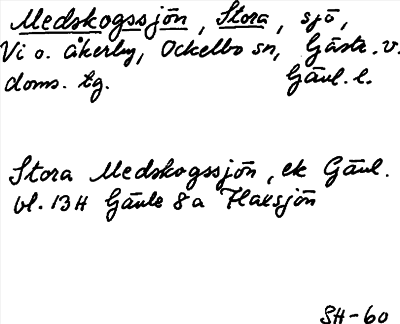 Medskogssjön, Stora, sjö,
Vi o. Åkerby, Ockelbo sn, Gästr. v.
doms. tg. Gävl. l.
Stora Medskogssjön, ek Gävl.
bl. 13H Gävle 8a Flaksjön
SH-60